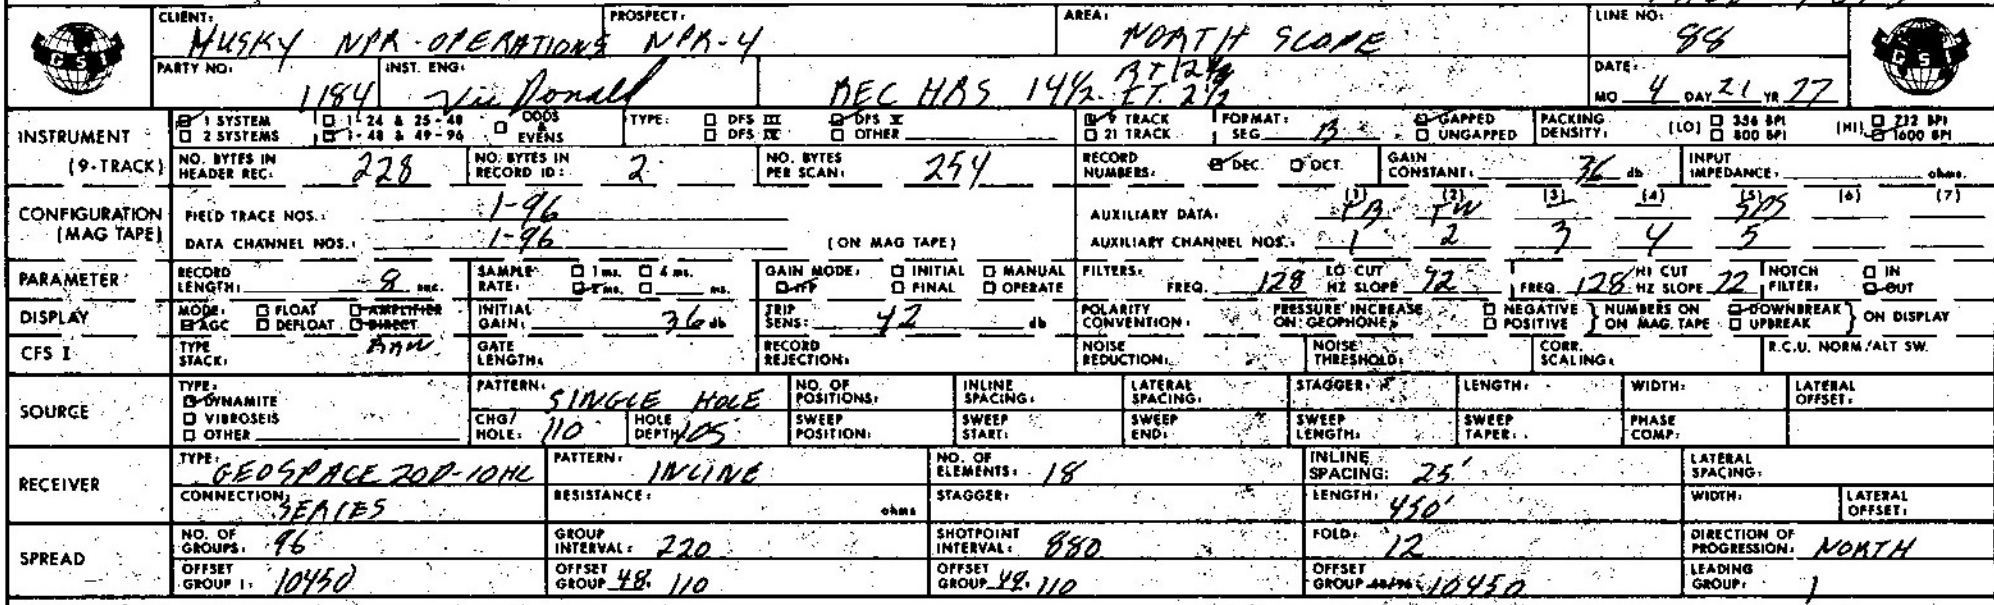 CLIENT: HUSKY NPR-OPERATIONS PROSPECT: NPR-4 AREA: NORTH SLOPE LINE NO: 88
GSI PARTY NO: 1184 INST. ENG: Vic Donald REC HRS 14½ RT 12 ET. 2½ DATE: MO 4 DAY 21 YR 77 GSI
INSTRUMENT (9-TRACK) 1 SYSTEM 1-24 & 25-48 ODDS & EVENS TYPE: DFS III DFS V 9 TRACK FORMAT: GAPPED PACKING DENSITY: (LO) 356 BPI (HI) 232 BPI
2 SYSTEMS 1-48 & 49-96 DFS IV OTHER 21 TRACK SEG B UNGAPPED 800 BPI 1600 BPI
NO. BYTES IN HEADER REC: 228 NO. BYTES IN RECORD ID: 2 NO. BYTES PER SCAN: 254 RECORD NUMBERS: DEC. OCT. GAIN CONSTANT: 36 db INPUT IMPEDANCE: ohms.
CONFIGURATION (MAG TAPE) FIELD TRACE NOS.: 1-96 AUXILIARY DATA: (1) TB (2) TW (3) (4) (5) SPS (6) (7)
DATA CHANNEL NOS.: 1-96 (ON MAG TAPE) AUXILIARY CHANNEL NOS.: 1 2 3 4 5
PARAMETER RECORD LENGTH: 8 sec. SAMPLE RATE: 1 ms. 4 ms. 2 ms. ms. GAIN MODE: INITIAL MANUAL IFP FINAL OPERATE FILTERS: FREQ. 128 LO CUT HZ SLOPE 72 FREQ. 128 HI CUT HZ SLOPE 72 NOTCH FILTER: IN OUT
DISPLAY MODE: FLOAT AMPLIFIER AGC DEFLOAT DIRECT INITIAL GAIN: 36 db TRIP SENS: 42 db POLARITY CONVENTION: PRESSURE INCREASE ON GEOPHONE: NEGATIVE POSITIVE NUMBERS ON ON MAG. TAPE DOWNBREAK UPBREAK ON DISPLAY
CFS I TYPE STACK: RAW GATE LENGTH: RECORD REJECTION: NOISE REDUCTION: NOISE THRESHOLD: CORR. SCALING: R.C.U. NORM./ALT SW.
SOURCE TYPE: DYNAMITE VIBROSEIS OTHER PATTERN: SINGLE HOLE NO. OF POSITIONS: INLINE SPACING: LATERAL SPACING: STAGGER: LENGTH: WIDTH: LATERAL OFFSET:
CHG/HOLE: 110 HOLE DEPTH: 105 SWEEP POSITION: SWEEP START: SWEEP END: SWEEP LENGTH: SWEEP TAPER: PHASE COMP:
RECEIVER TYPE: GEOSPACE 20D-10HZ PATTERN: INLINE NO. OF ELEMENTS: 18 INLINE SPACING: 25' LATERAL SPACING:
CONNECTION: SERIES RESISTANCE: ohms STAGGER: LENGTH: 450' WIDTH: LATERAL OFFSET:
SPREAD NO. OF GROUPS: 96 GROUP INTERVAL: 220 SHOTPOINT INTERVAL: 880 FOLD: 12 DIRECTION OF PROGRESSION: NORTH
OFFSET GROUP 1: 10450 OFFSET GROUP 48: 110 OFFSET GROUP 49: 110 OFFSET GROUP 48/96: 10450 LEADING GROUP: 1